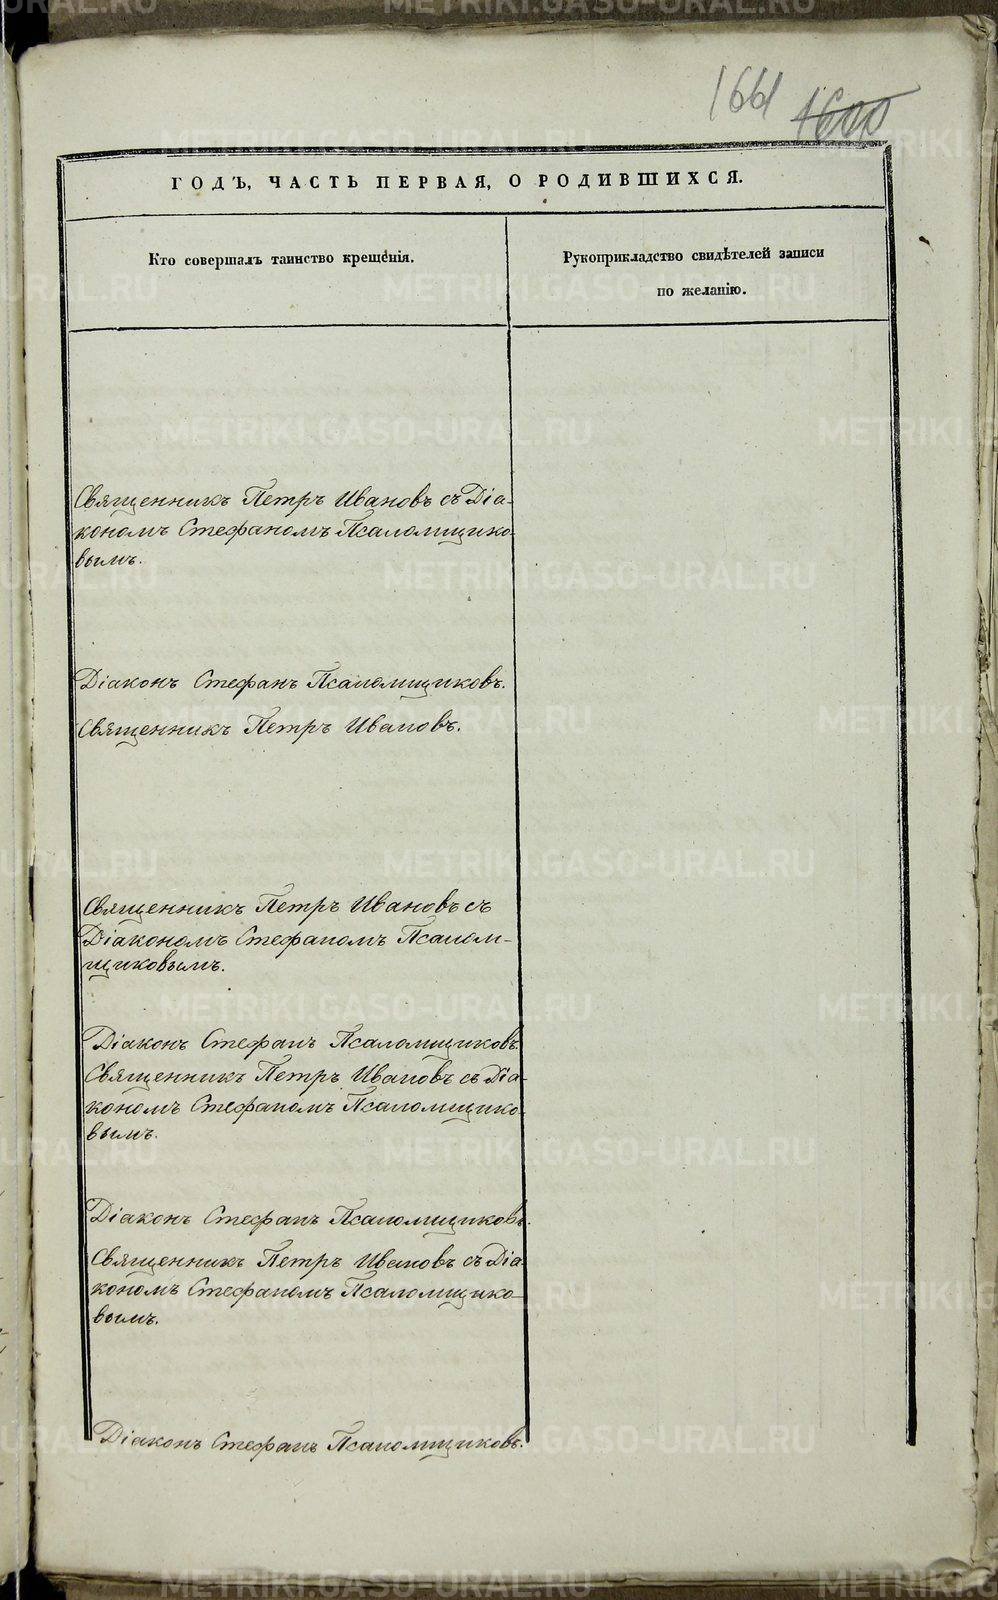 1661 1600
ГОДЪ, ЧАСТЬ ПЕРВАЯ, О РОДИВШИХСЯ.
Кто совершалъ таинство крещенія.
Рукоприкладство свидѣтелей записи
по желанію.
Священникъ Петръ Ивановъ съ Діа-
кономъ Стефаномъ Псаломщико-
вымъ.
Діаконъ Стефанъ Псаломщиковъ.
Священникъ Петръ Ивановъ.
Священникъ Петръ Ивановъ съ
Діакономъ Стефаномъ Псалом-
щиковымъ.
Діаконъ Стефанъ Псаломщиковъ.
Священникъ Петръ Ивановъ съ Діа-
кономъ Стефаномъ Псаломщико-
вымъ.
Діаконъ Стефанъ Псаломщиковъ.
Священникъ Петръ Ивановъ съ Діа-
кономъ Стефаномъ Псаломщико-
вымъ.
Діаконъ Стефанъ Псаломщиковъ.
METRIKI.GASO-URAL.RU